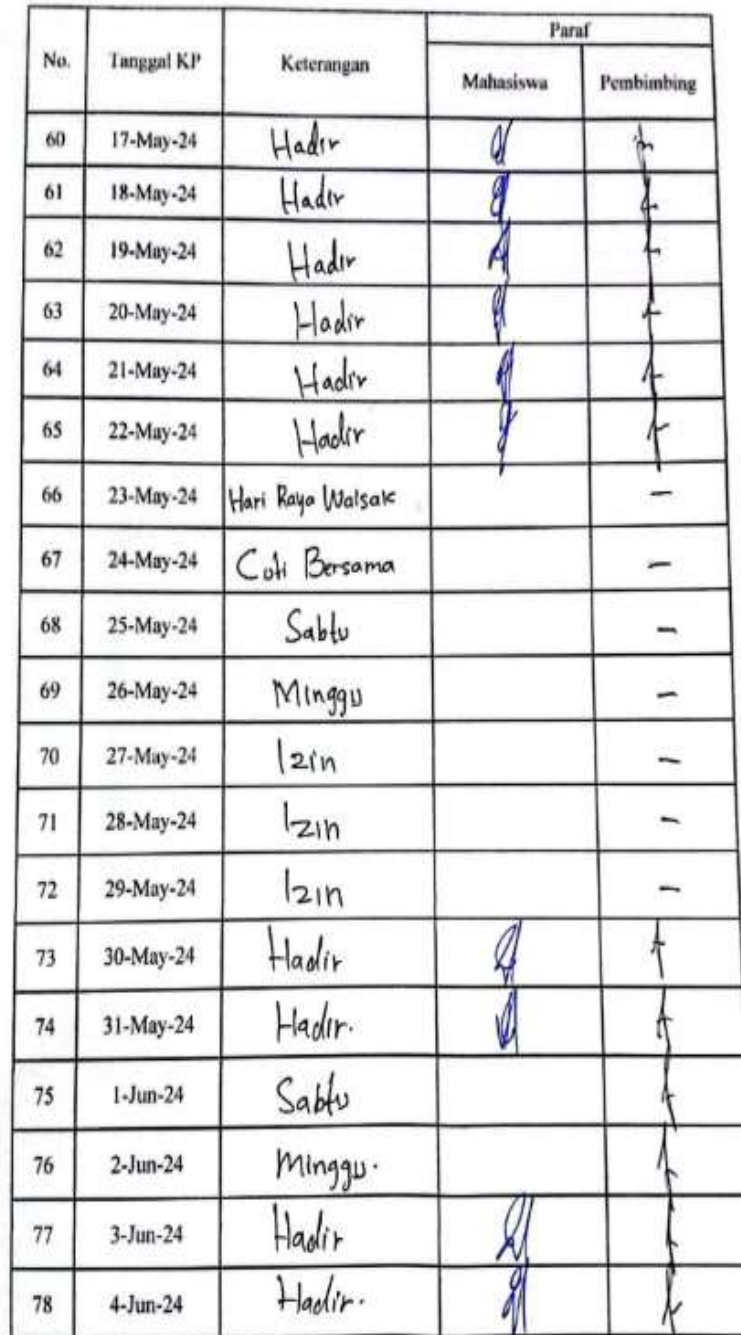 No. Tanggal KP Keterangan Paraf
Mahasiswa Pembimbing
60 17-May-24 Hadir
61 18-May-24 Hadir
62 19-May-24 Hadir
63 20-May-24 Hadir
64 21-May-24 Hadir
65 22-May-24 Hadir
66 23-May-24 Hari Raya Waisak -
67 24-May-24 Cuti Bersama -
68 25-May-24 Sabtu -
69 26-May-24 Minggu -
70 27-May-24 Izin -
71 28-May-24 Izin -
72 29-May-24 Izin -
73 30-May-24 Hadir
74 31-May-24 Hadir.
75 1-Jun-24 Sabtu
76 2-Jun-24 Minggu.
77 3-Jun-24 Hadir
78 4-Jun-24 Hadir.